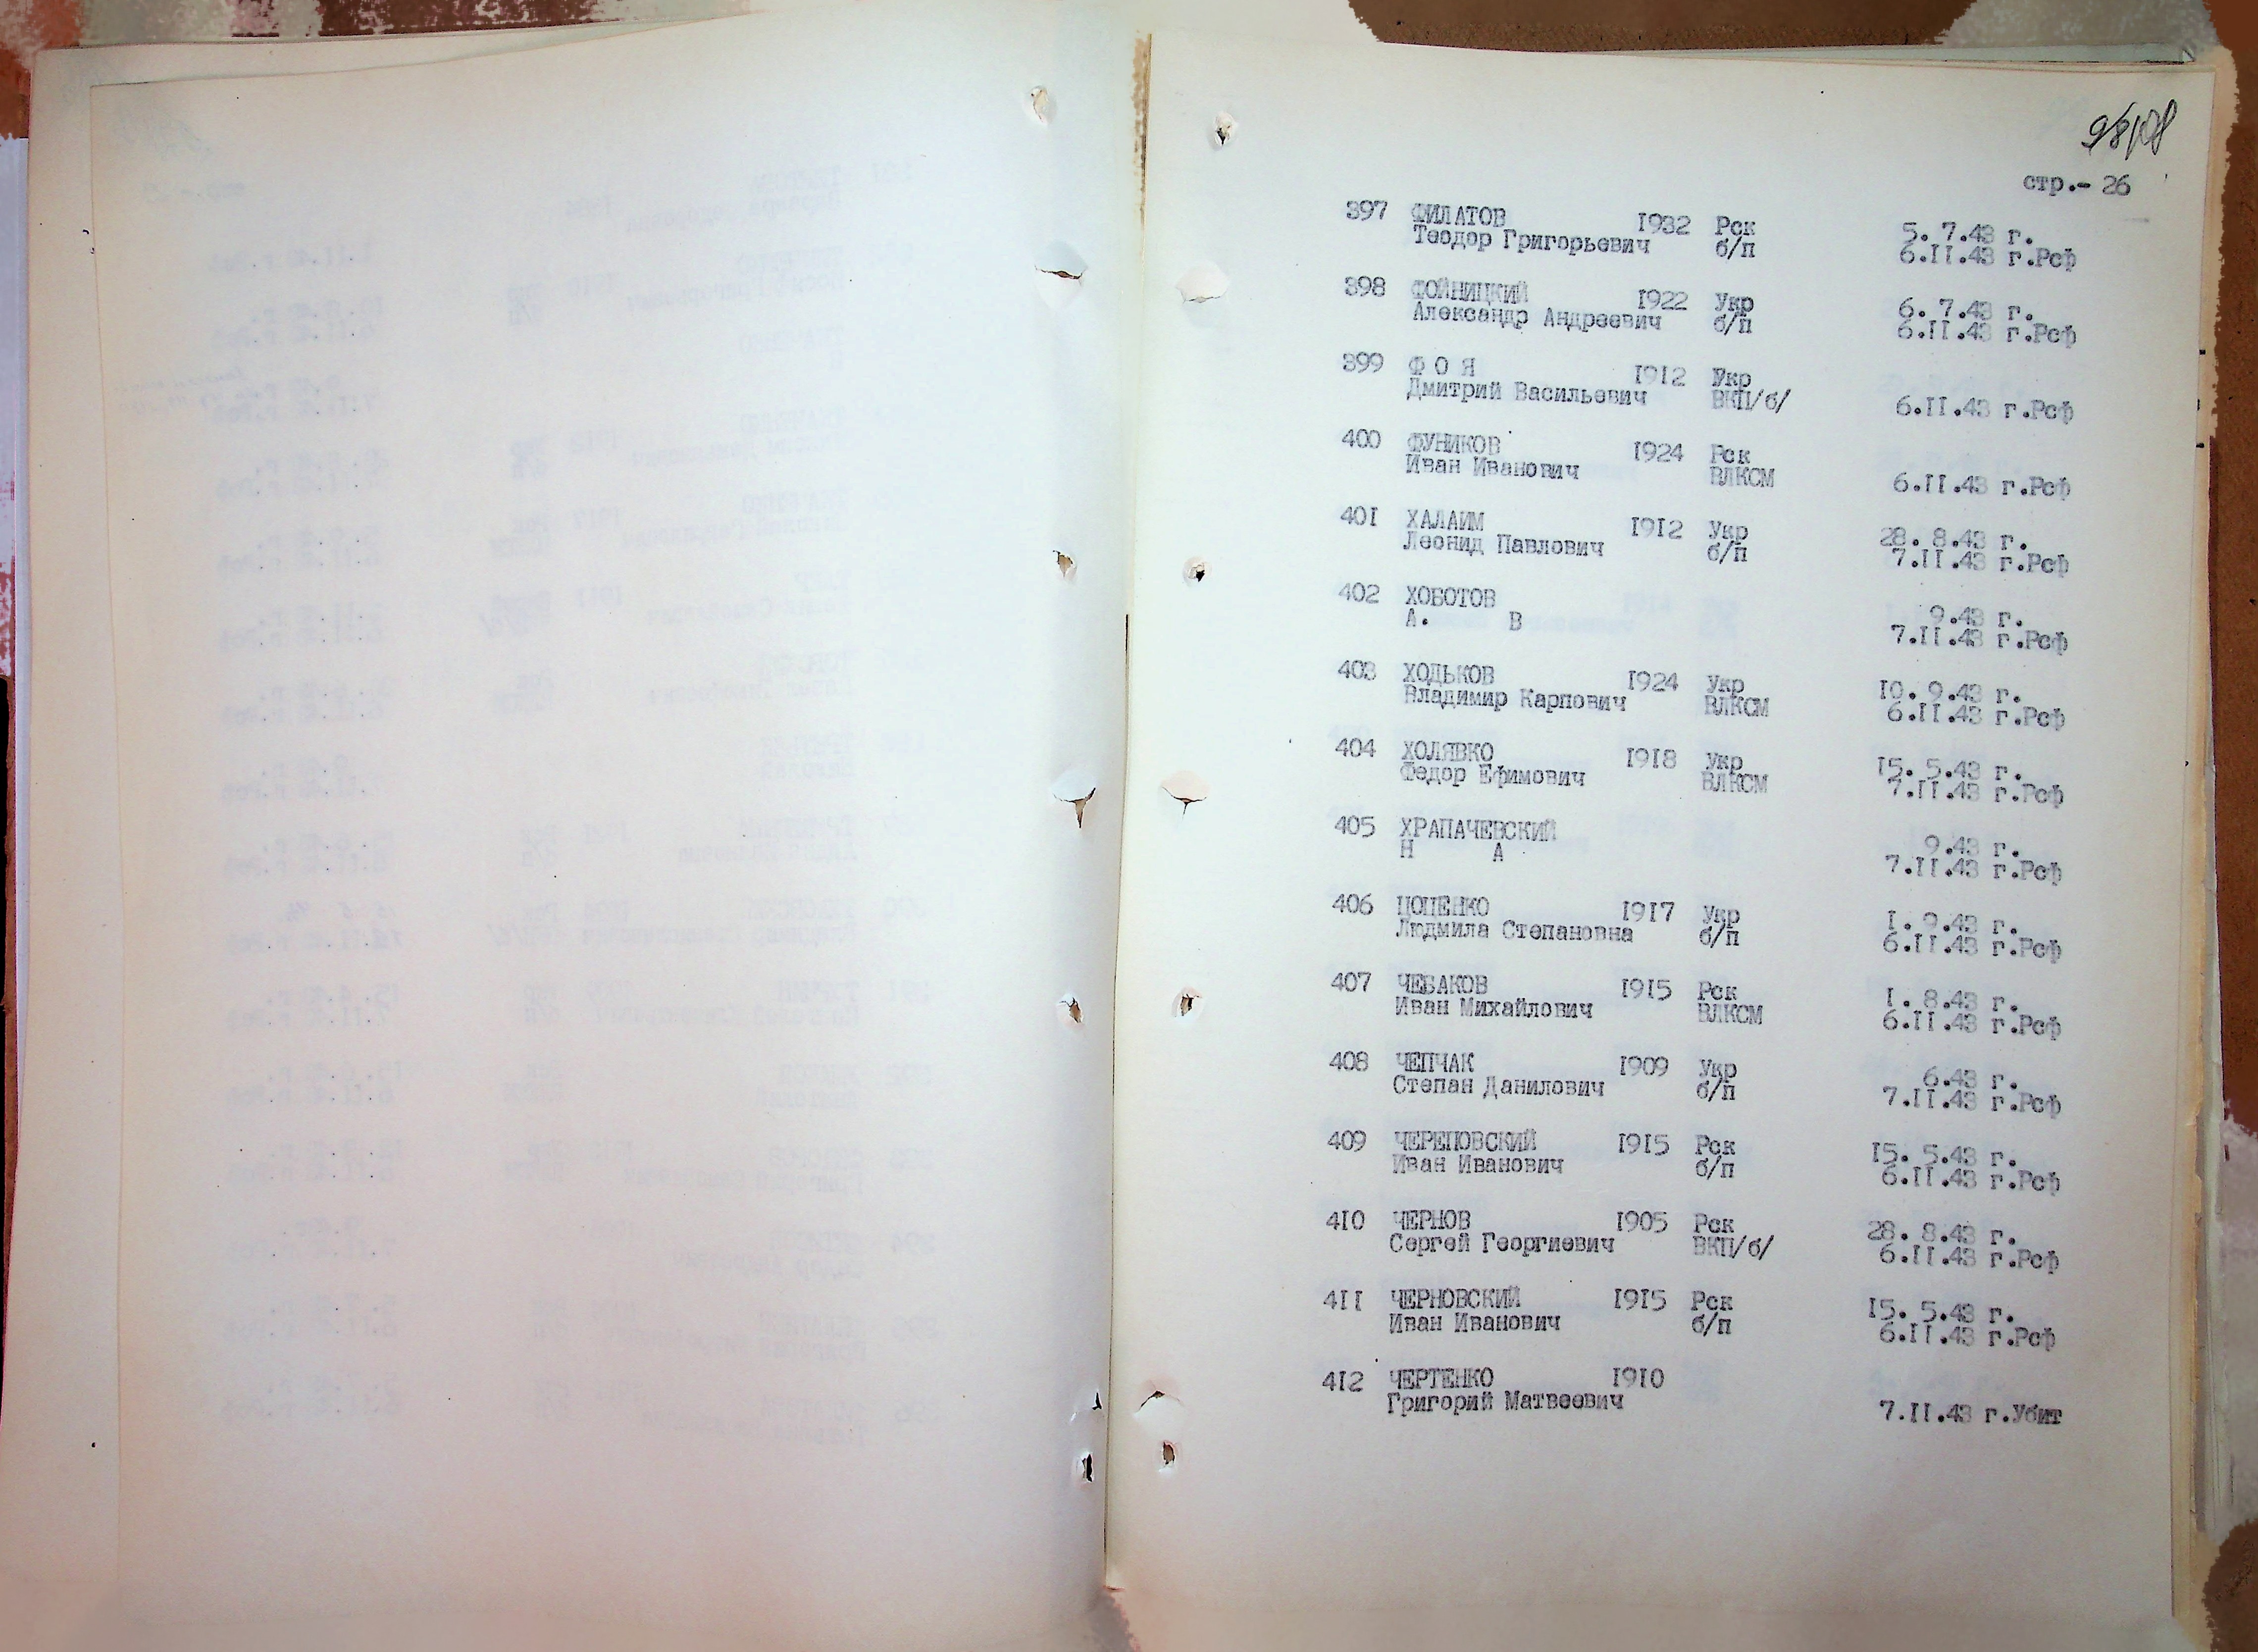 98/08
стр.- 26
397 ФИЛАТОВ 1932 Рск 5. 7.43 г.
Теодор Григорьевич б/п 6.II.43 г.Рсф
398 ФОЙНИЦКИЙ 1922 Укр 6. 7.43 г.
Александр Андреевич б/п 6.II.43 г.Рсф
399 Ф О Я 1912 Укр
Дмитрий Васильевич ВКП/б/ 6.II.43 г.Рсф
400 ФУНИКОВ 1924 Рск
Иван Иванович ВЛКСМ 6.II.43 г.Рсф
40I ХАЛАИМ I9I2 Укр 28. 8.43 г.
Леонид Павлович б/п 7.II.43 г.Рсф
402 ХОБОТОВ 9.43 г.
А. В 7.II.43 г.Рсф
403 ХОДЬКОВ I924 Укр I0. 9.43 г.
Владимир Карпович ВЛКСМ 6.II.43 г.Рсф
404 ХОЛЯВКО I9I8 Укр I5. 5.43 г.
Федор Ефимович ВЛКСМ 7.II.43 г.Рсф
405 ХРАПАЧЕВСКИЙ 9.43 г.
Н А 7.II.43 г.Рсф
406 ЦОЦЕНКО I9I7 Укр I. 9.43 г.
Людмила Степановна б/п 6.II.43 г.Рсф
407 ЧЕБАКОВ I9I5 Рск I. 8.43 г.
Иван Михайлович ВЛКСМ 6.II.43 г.Рсф
408 ЧЕПЧАК I909 Укр 6.43 г.
Степан Данилович б/п 7.II.43 г.Рсф
409 ЧЕРЕПОВСКИЙ I9I5 Рск I5. 5.43 г.
Иван Иванович б/п 6.II.43 г.Рсф
4I0 ЧЕРНОВ I905 Рск 28. 8.43 г.
Сергей Георгиевич ВКП/б/ 6.II.43 г.Рсф
4II ЧЕРНОВСКИЙ I9I5 Рск I5. 5.43 г.
Иван Иванович б/п 6.II.43 г.Рсф
4I2 ЧЕРТЕНКО I9I0
Григорий Матвеевич 7.II.43 г.Убит